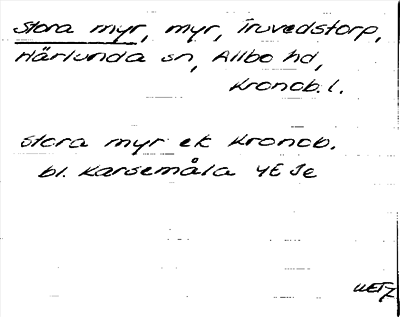 Stora myr, myr, Truvedstorp,
Härlunda sn, Allbo hd,
Kronob. l.
Stora myr ek Kronob.
bl. Karsemåla 4E Je